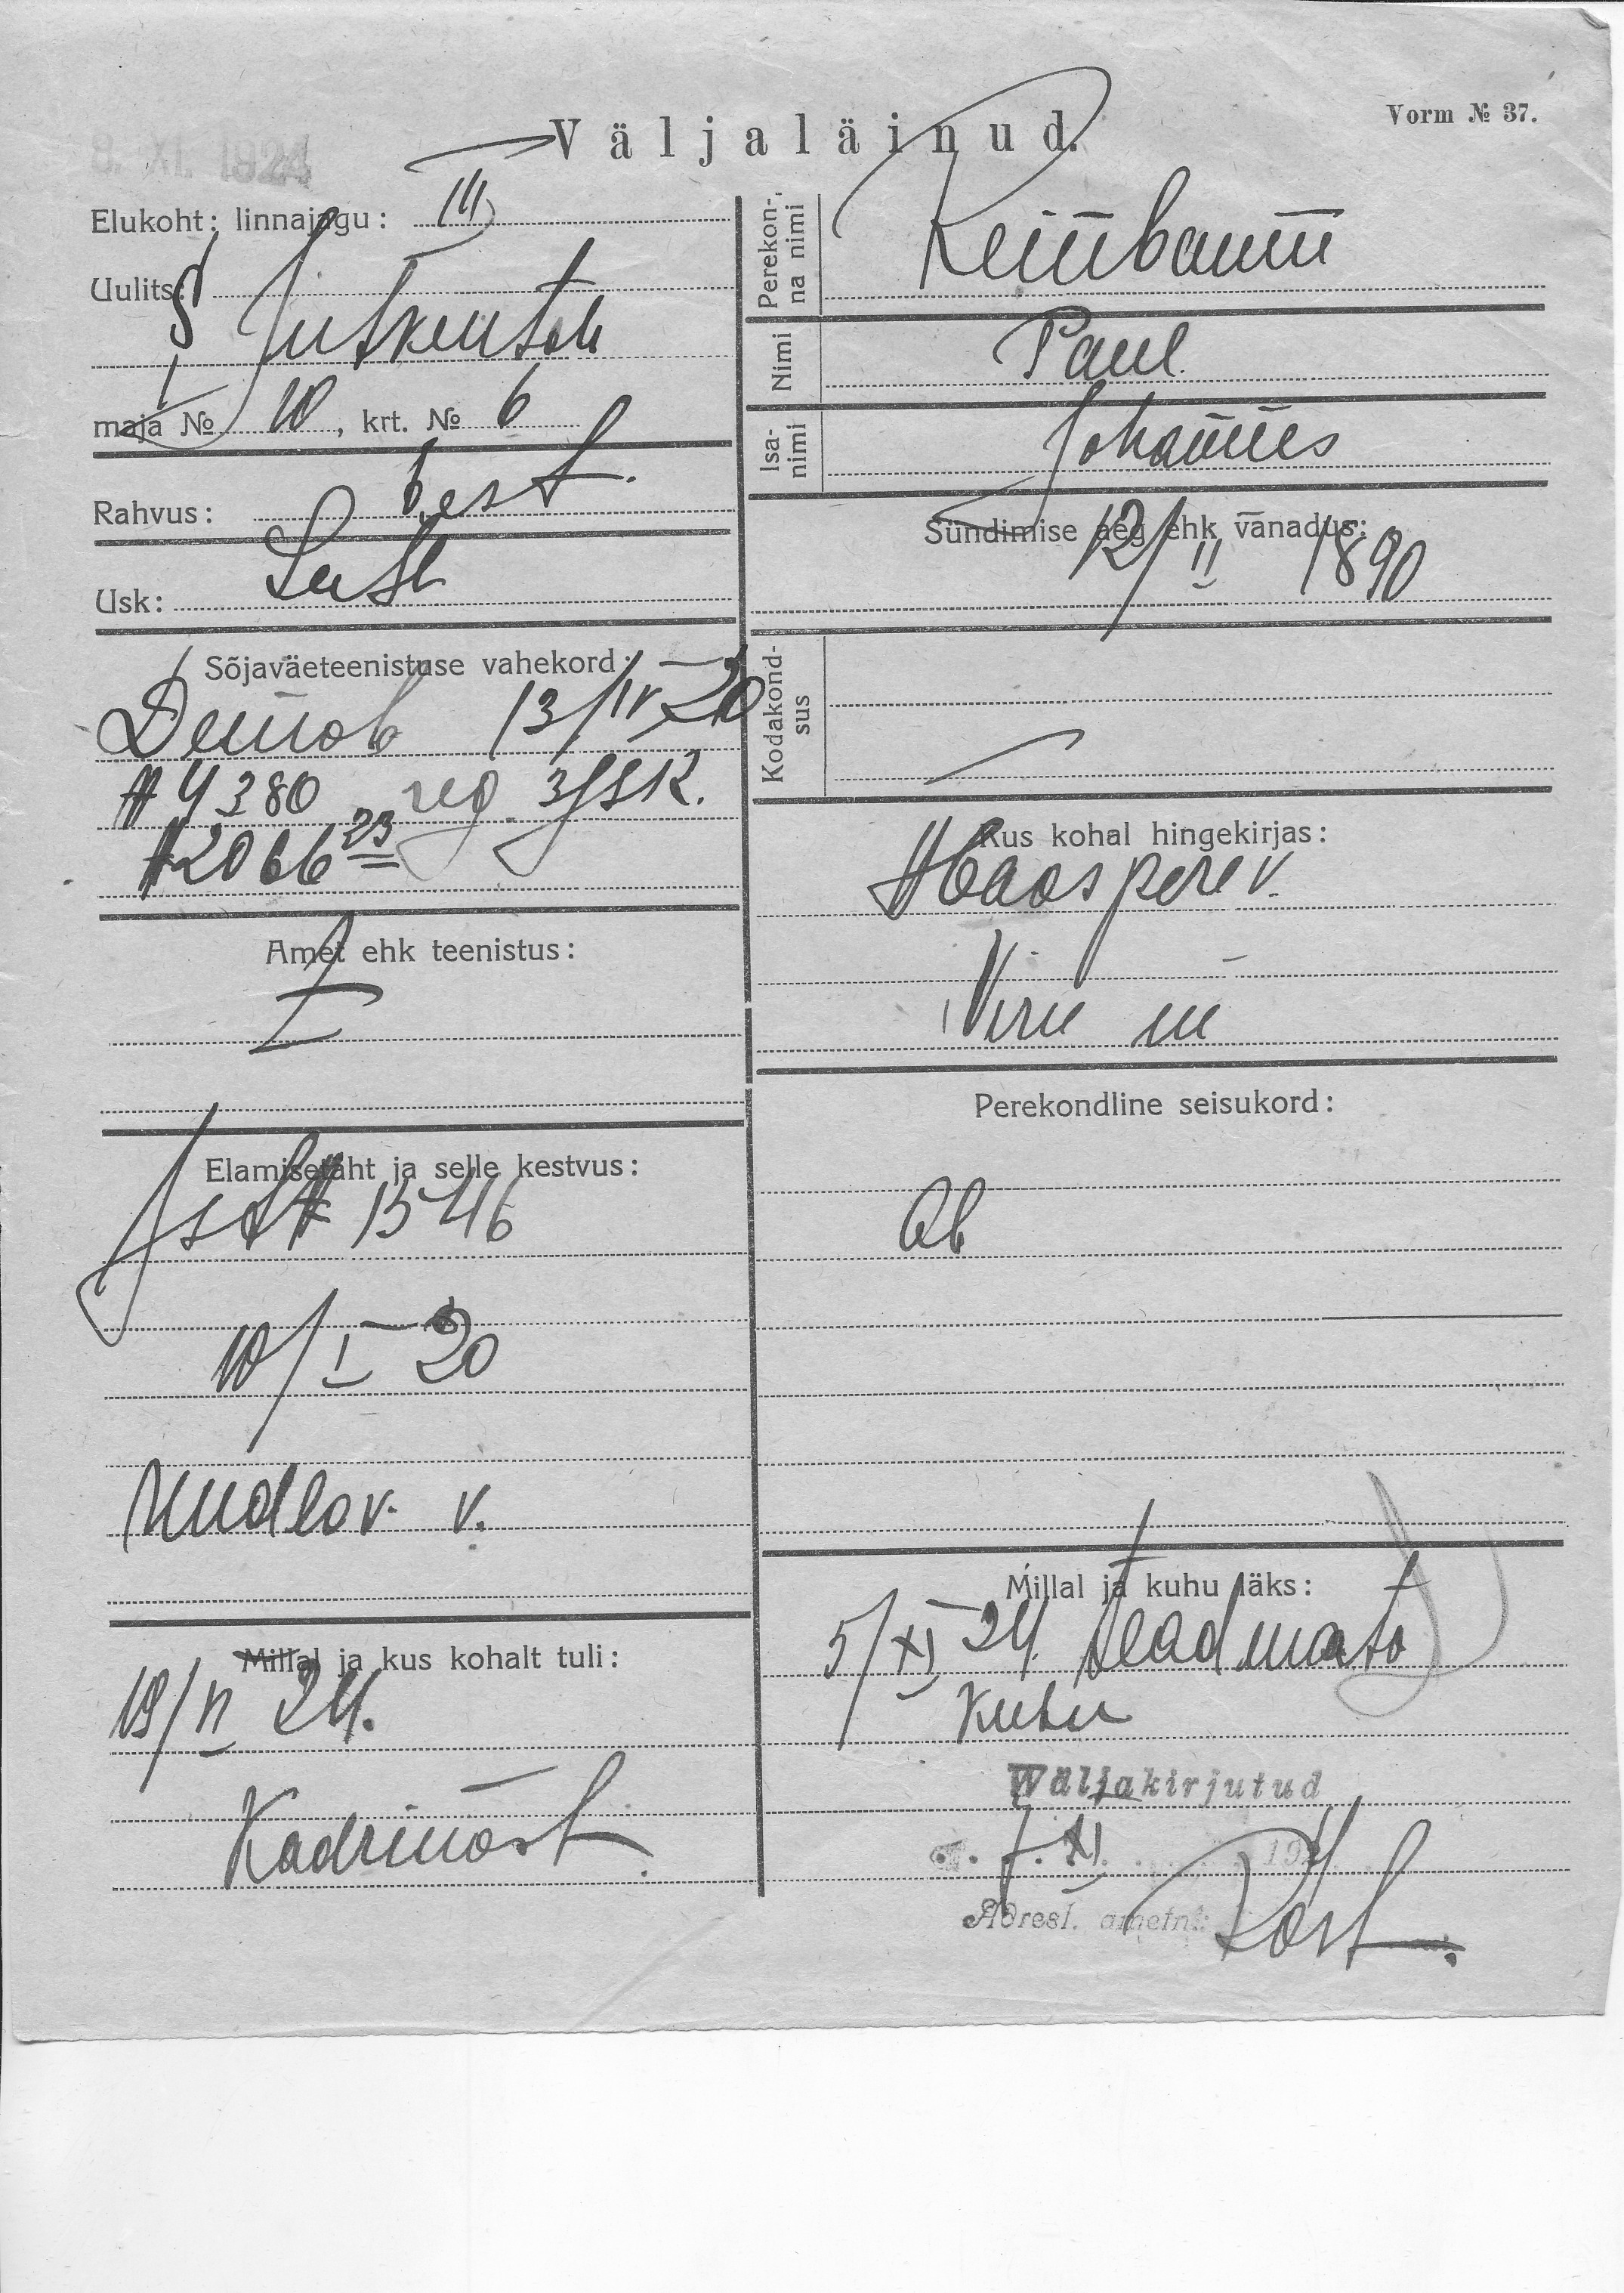 Vorm № 37.
Väljaläinud.
8. XI. 1924
Elukoht: linnajagu: III
Uulits:
maja № 10, krt. № 6
Rahvus: Eest.
Usk: Lut
Sõjaväeteenistuse vahekord:
Demob 13/IV 20
№ 4380 reg. 3 jsk.
№ 2066 23
Amet ehk teenistus:
Elamisetäht ja selle kestvus:
№ 1546
10/I 20
v.
Millal ja kus kohalt tuli:
19/VI 24.
Kadrinast.
Perekonna nimi
Nimi Paul
Isanimi Johannes
Sündimise aeg ehk vanadus:
12/II 1890
Kodakondsus
Kus kohal hingekirjas:
Haaspere v.
Viru m
Perekondline seisukord:
Ab
Millal ja kuhu läks:
5/XI 24. teadmata
kuhu
Väljakirjutud
7. XI 1924
Adresl. ametn: